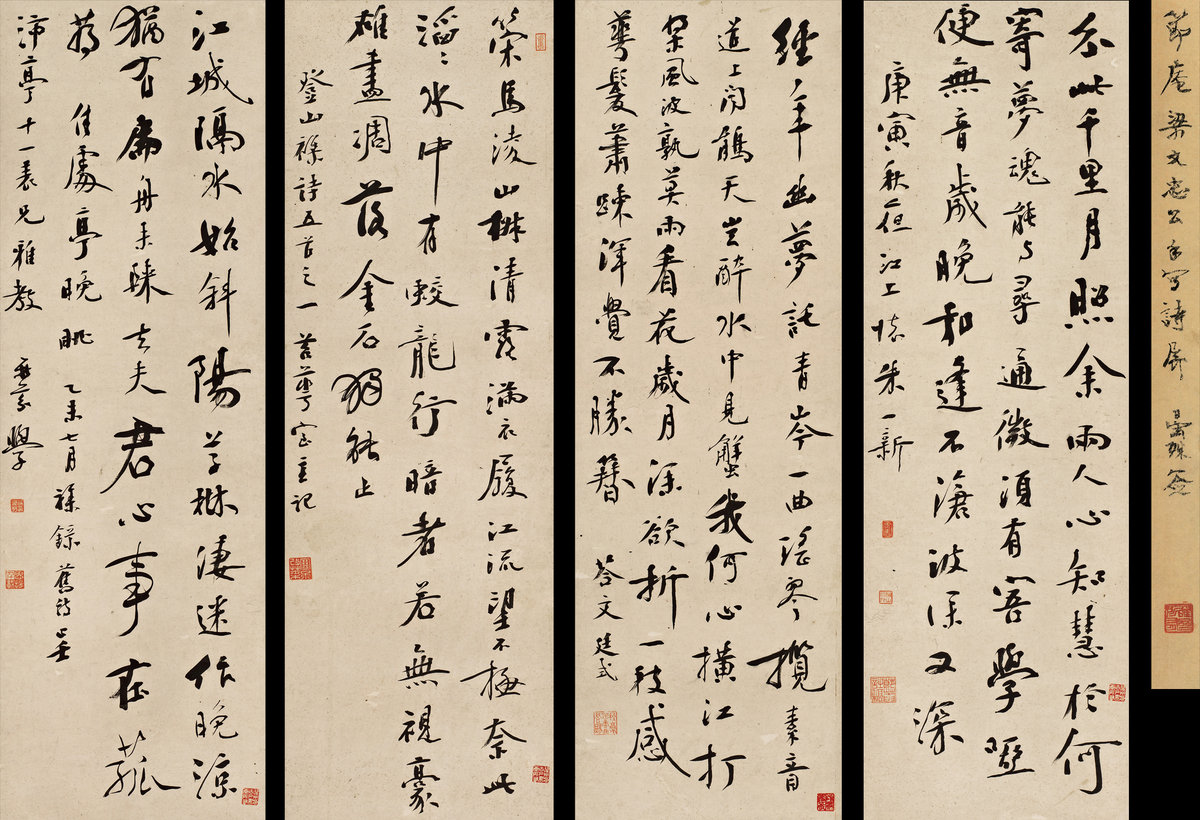 節庵梁文忠公手寫詩屏 曇殊簽
分此千里月照余兩人心知慧於何
寄夢魂能與尋通微須有害學啞
便無音歲晚相逢不滄波深又深
庚寅秋夜江上懷朱一新
經年幽夢託青岑一曲瑤琴攬素音
道上聞鵑天豈醉水中見蟹我何心橫江打
槳風波孰莫雨看花歲月深欲折一枝感
華髮蕭疎渾覺不勝簪 答文廷式
策馬淩山椒清露滿衣履江流望不極奈此
滔滔水中有蛟龍行暗者若無視豪
雄盡凋落金石能止
登山襍詩五首之一 苕華室主記
江城隔水始斜陽草樹淒迷作晚涼
猶有扁舟來去夫君心事在菰
蔣 隹處亭晚眺 乙未七月襍錄舊詩呈
沛亭十一表兄雅教 鼎芬學